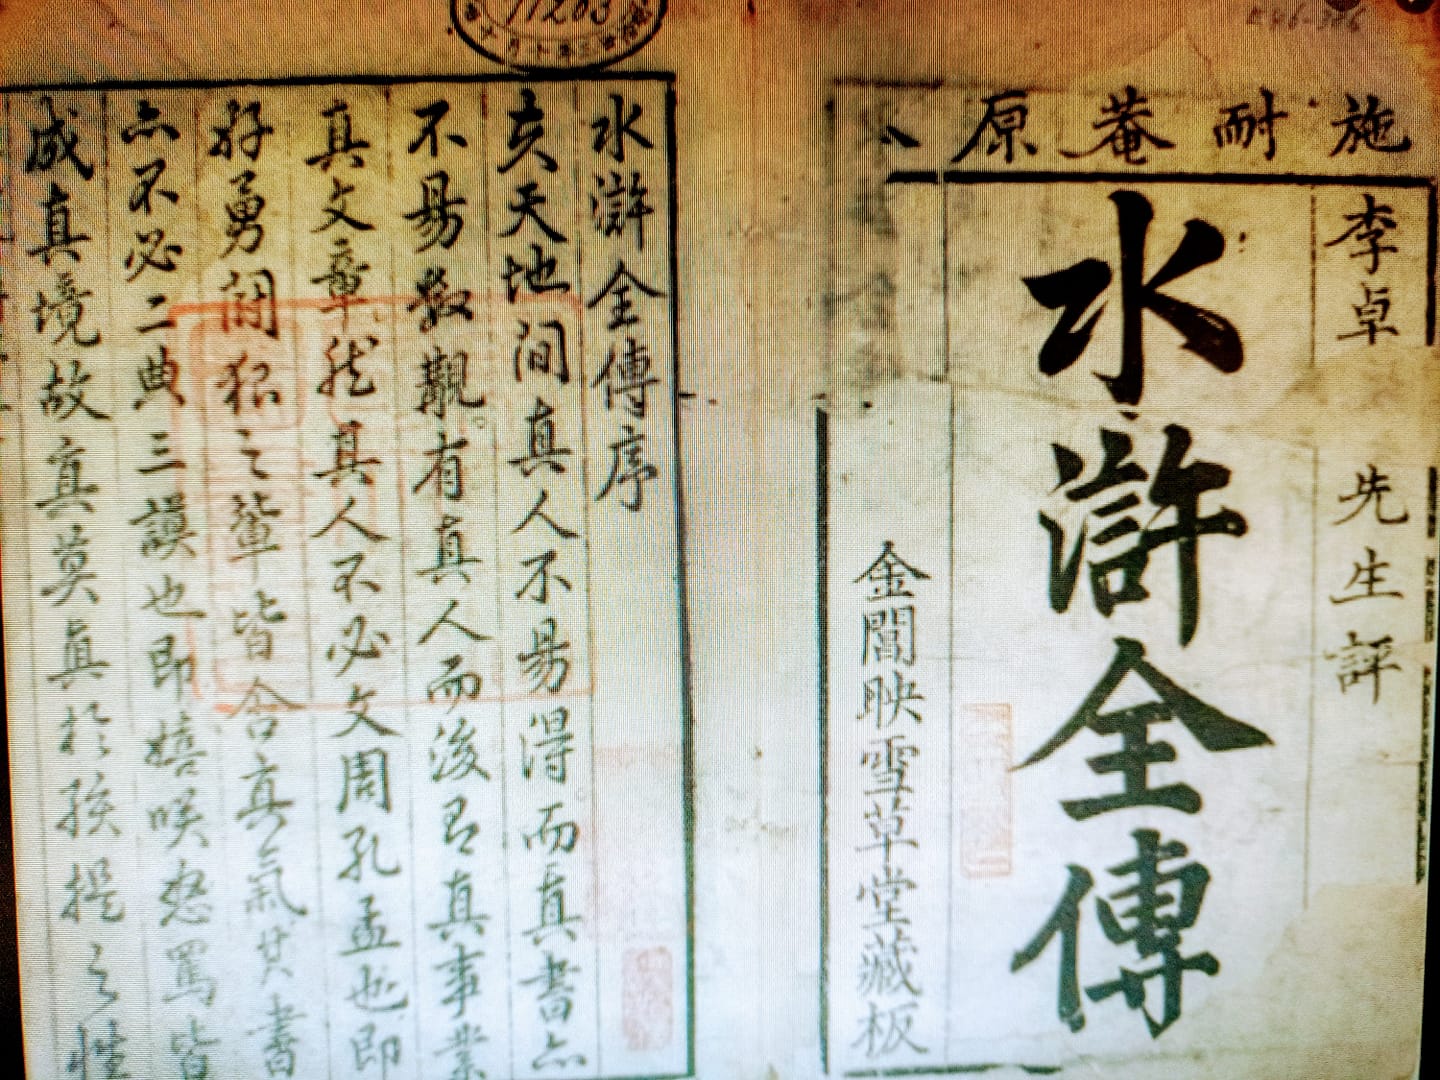 施耐菴原本
李卓 先生評
水滸全傳
金閶映雪草堂藏板
水滸全傳序
夫天地間真人不易得而真書亦
不易數覯。有真人而後有真事業
真文章然真人不必文周孔孟也即
好勇鬪狠之輩皆含真氣其書
亦不必二典三謨也即嬉咲怒罵皆
成真境故真莫真於孩提之性
11203